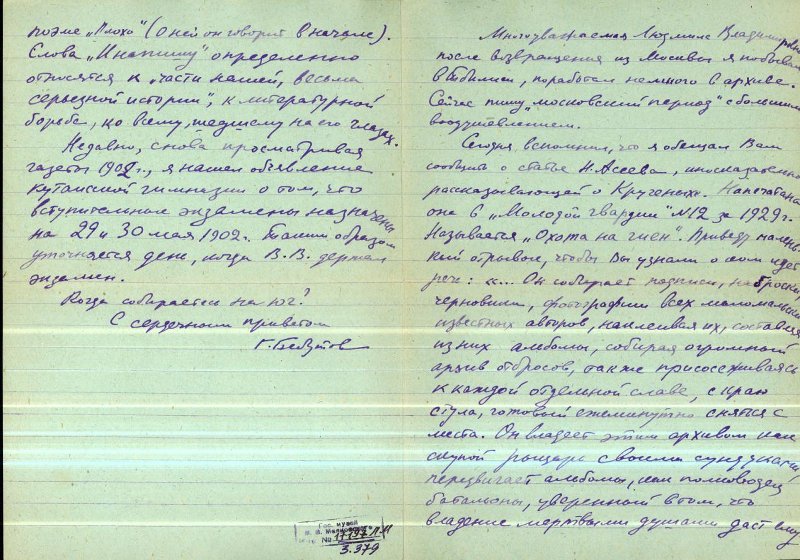 Многоуважаемая Людмила Владимировна
после возвращения из Москвы я побывал
в Тбилиси, поработал немного в архиве.
Сейчас пишу „московский период" с большим
воодушевлением.
Сегодня вспомнил, что я обещал Вам
сообщить о статье Н. Асеева, иносказательно
рассказывающей о Крученых. Напечатана
она в „Молодой гвардии" №12 за 1929 г.
Называется „Охота на гиен". Приведу малень-
кий отрывок, чтобы Вы узнали о ком идет
речь: «... Он собирает подписи, наброски,
черновики, фотографии всех маломальски
известных авторов, наклеивая их, составляя
из них альбомы, собирая огромный
архив отбросов, также присоседиваясь
к каждой отдельной славе, с краю
стула, готовый ежеминутно сняться с
места. Он владеет этим архивом как
скупой рыцарь своими сундуками
передвигает альбомы, как полководец
батальоны, уверенный в том, что
владение мертвыми душами даст ему
поэме „Плохо" (о ней он говорит в начале).
Слова „И напишу" определенно
относятся к „части нашей, весьма
серьезной истории", к литературной
борьбе, ко всему, шедшему на его глазах.
Недавно, снова просматривая
газеты 1902 г., я нашел объявление
кутаисской гимназии о том, что
вступительные экзамены назначены
на 29 и 30 мая 1902. Таким образом
уточняется день, когда В.В. держал
экзамен.
Когда собираетесь на юг?
С сердечным приветом
Г. Бебутов
Гос. музей
В. В. Маяковского
No
3.379